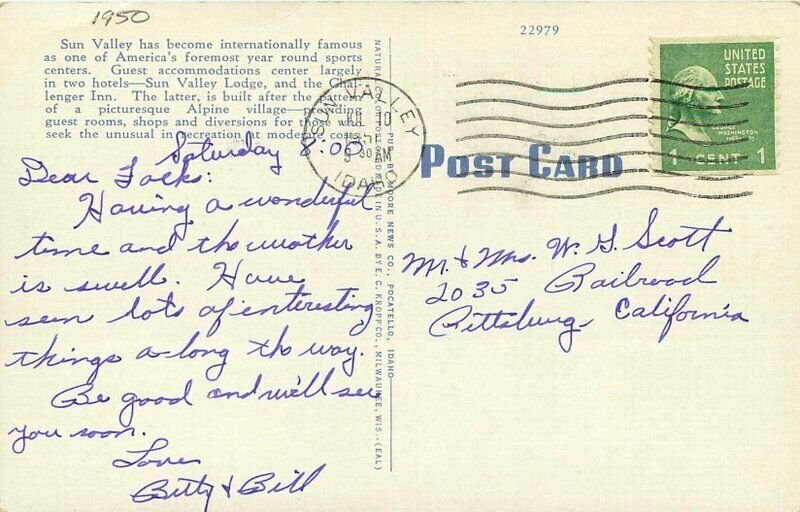 1950
22979
Sun Valley has become internationally famous
as one of America's foremost year round sports
centers. Guest accommodations center largely
in two hotels—Sun Valley Lodge, and the Chal-
lenger Inn. The latter, is built after the pattern
of a picturesque Alpine village—providing
guest rooms, shops and diversions for those who
seek the unusual in recreation at moderate cost.
Saturday 2:00
Dear Folks:
Having a wonderful
time and the weather
is swell. Have
seen lots of interesting
things a long the way.
Be good and we'll see
you soon.
Love
Betty & Bill
PUB. BY MOORE NEWS CO., POCATELLO, IDAHO
MADE IN U.S.A. BY E. C. KROPP CO., MILWAUKEE, WIS.-(EAL)
SUN VALLEY
JUL 10
30 AM
IDAHO
POST CARD
UNITED
STATES
POSTAGE
GEORGE
WASHINGTON
1 CENT 1
Mr. & Mrs. W. G. Scott
2035 Railroad
Pittsburg, California